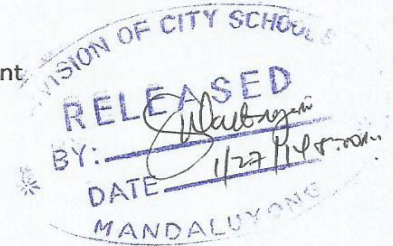 nt
DIVISION OF CITY SCHOOLS
RELEASED
BY:
DATE 1/27/14
MANDALUYONG